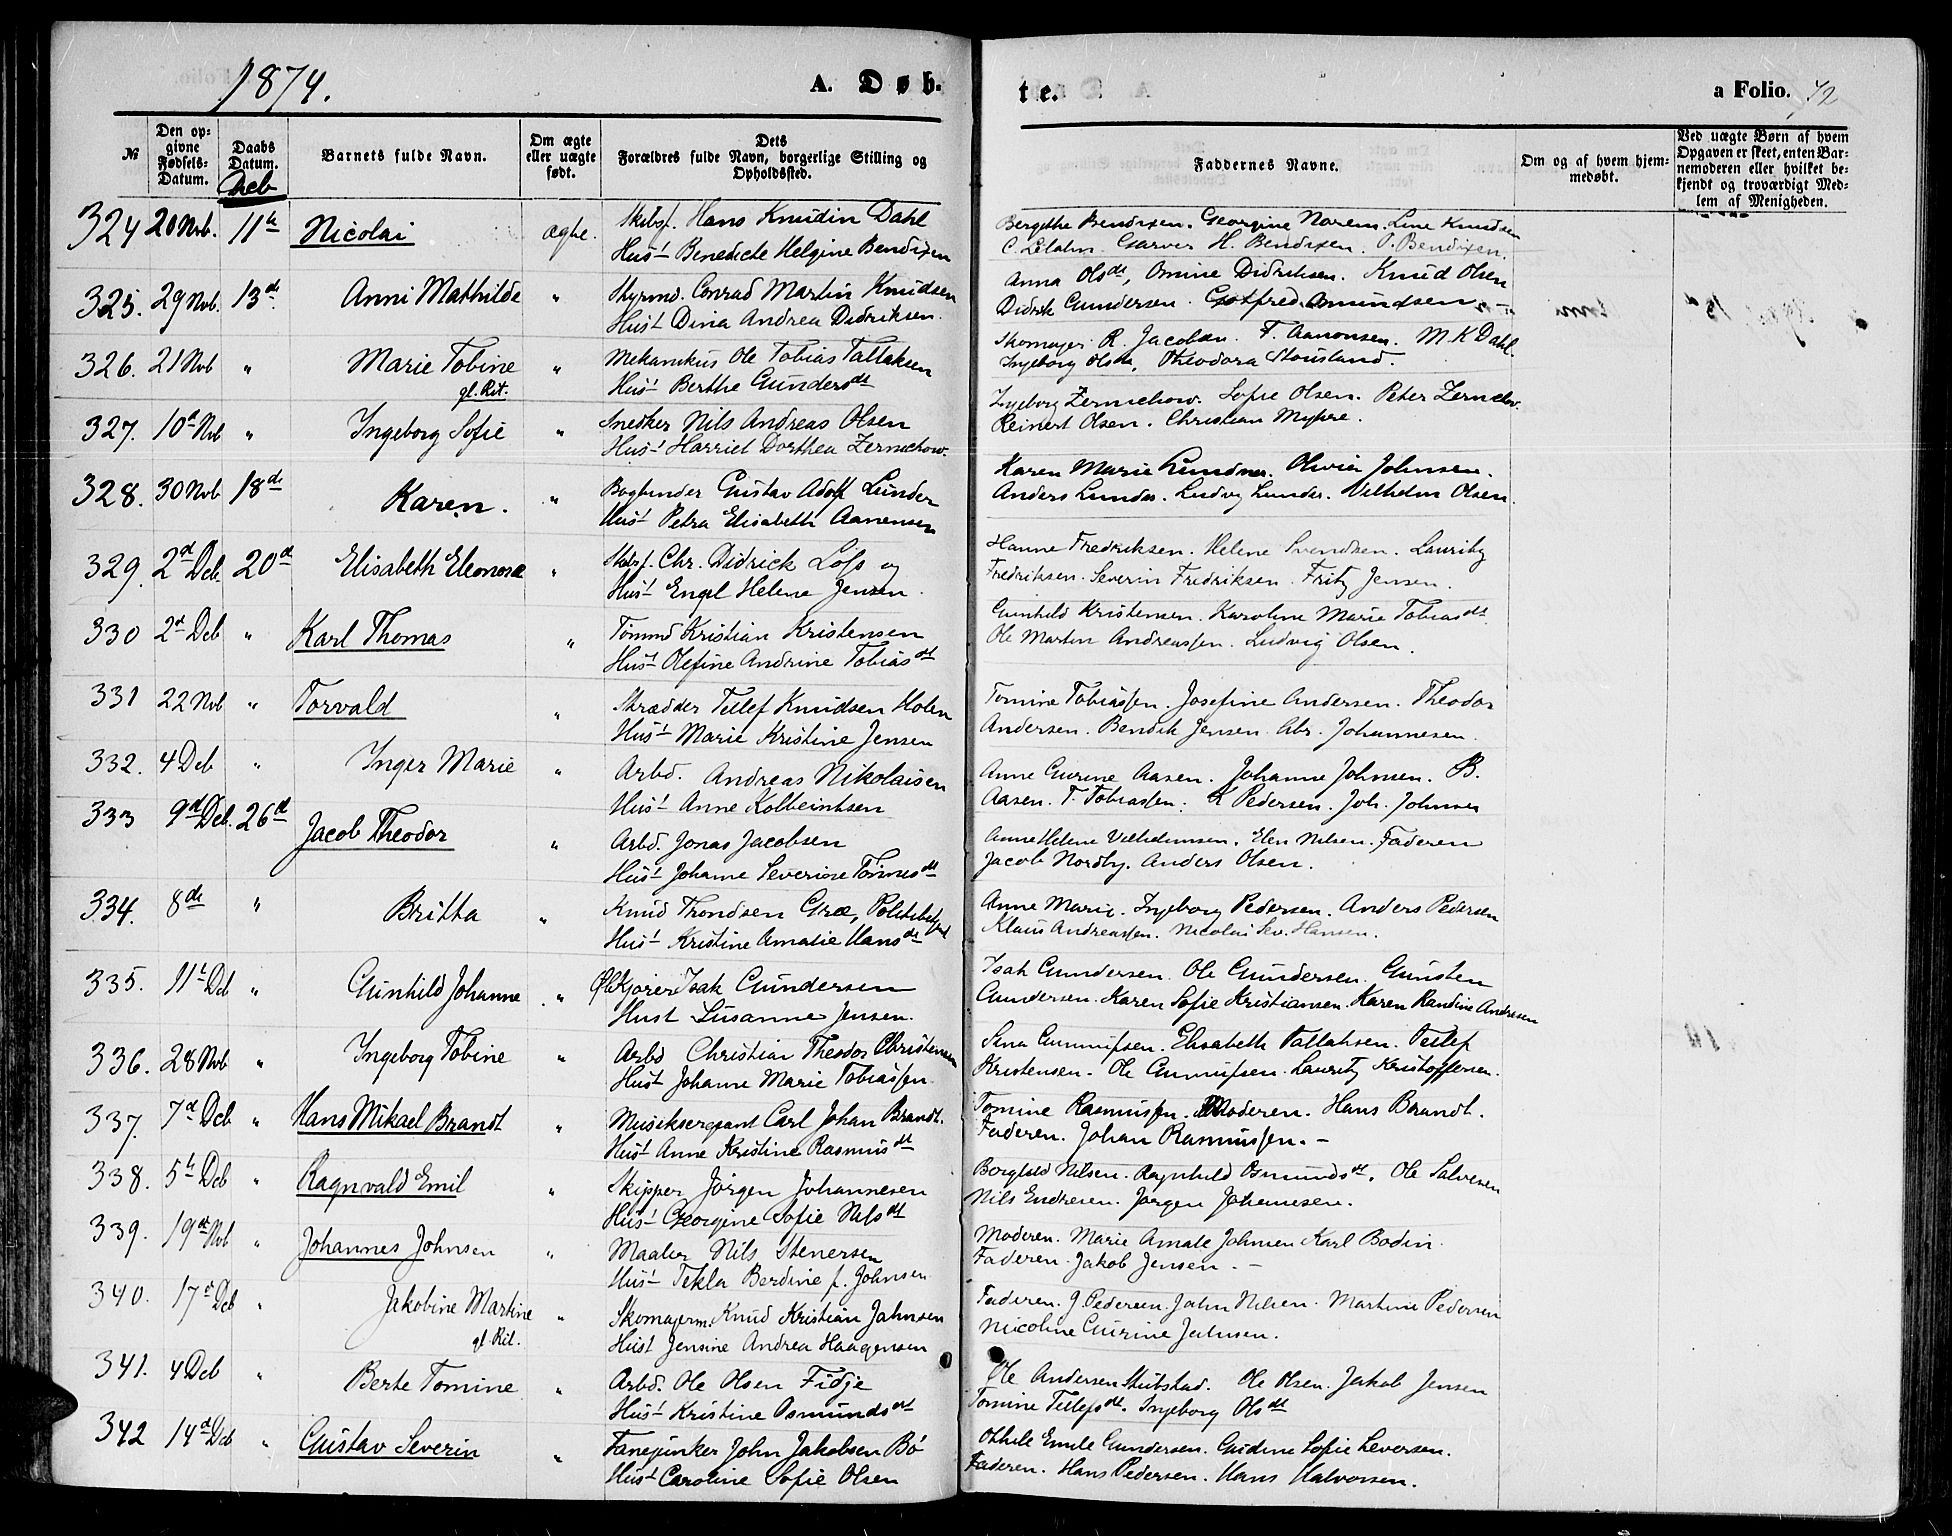 1874.
A. Døb-
te.
a Folio. 42
№
Den op-
givne
Fødsels-
Datum.
Daabs
Datum.
Deb
Barnets fulde Navn.
Om ægte
eller uægte
født.
Dets
Forældres fulde Navn, borgerlige Stilling og
Opholdssted.
Faddernes Navne.
Om og af hvem hjem-
medøbt.
Ved uægte Børn af hvem
Opgaven er skeet, enten Bar-
nemoderen eller hvilket be-
kjendt og troværdigt Med-
lem af Menigheden.
324 20 Nvb. 11te Nicolai ægte. Skibsf. Hans Knudin Dahl
Hust Benedicte Helgine Bendixen
Bergithe Bendixen. Georgine Norem. Line Knudsen
H. Bendixen. P. Bendixen.
325. 29 Nvb. 13de Anni Mathilde " Styrmd. Conrad Martin Knudsen
Hust Dina Andrea Didriksen.
Anna Olsdt, Omine Didriksen. Knud Olsen
Didrik Gundersen. Gotfred Amundsen
326. 21 Nvb " Marie Tobine " Mekanikus Ole Tobias Tallaksen
gl. Rit. Hust Berthe Gundersdt
Skomager R. Jacobsen. T. Aanonsen. M. K Dahl.
Ingeborg Olsen, Theodora Stousland.
327. 10de Nvb " Ingeborg Sofie " Snedker Nils Andreas Olsen
Hust Harriet Dorthea Zernichow.
Ingeborg Zernichow. Sofie Olsen. Peter Zernichow.
Reinert Olsen. Christian Myhre.
328. 30 Nvb 18de Karen. " Bogbinder Gustav Adolf Lunder
Hust Petra Elisabeth Aanensen
Karen Marie Lunder. Olivia Johnsen.
Anders Lunder. Ludvig Lunder. Vilhelm Olsen.
329. 2det Deb 20de Elisabeth Eleonora " Skibsf. Chr. Didrick Löfs og
Hust Engel Helene Jensen.
Hanne Fredriksen. Helene Svendsen. Lauritz
Fredriksen. Severin Fredriksen. Fritz Jensen.
330 2d Deb " Karl Thomas " Tömmd Kristian Kristensen
Hust Olefine Andrine Tobiasdt
Gunhild Kristensen. Karoline Marie Tobiasdt.
Ole Martin Andreassen. Ludvig Olsen.
331 22 Nvb " Torvald " Skrædder Tellef Knudsen Holen
Hust Marie Kristine Jensen
Tomine Tobiassen. Josefine Andersen. Theodor
Andersen. Bendik Jensen. Abr. Johannesen.
332. 4 Deb " Inger Marie " Arbd. Andreas Nikolaisen
Hust Anne Kolbeinsen
Anne Gurine Aasen. Johanne Johnsen. B.
Aasen. T. Tobiassen. K Pedersen. Joh. Johnsen
333 9de Deb. 26de Jacob Theodor " Arbd. Jonas Jacobsen
Hust Johanne Severine Tönnesdt
Anne Helene Vilhelmsen. Elen Nilsen. Faderen
Jacob Nordby. Anders Olsen.
334. 8de " Britta " Knud Trondsen Græ,
Hust Kristine Amalie Hansdt
Anne Marie. Ingeborg Pedersen. Anders Pedersen
Klaus Andreassen. Nicolai Sev. Hansen.
335. 11te Deb " Gunhild Johanne " Ölkjörer Isak Gundersen
Hust Susanne Jensen.
Isak Gundersen. Ole Gundersen. Gunsten
Gundersen. Karen Sofie Kristiansen. Karen Randine Andersen
336. 28 Nvb " Ingeborg Tobine " Arbd Christian Theodor Christensen
Hust Johanne Marie Tobiassen.
Sina Gunnufsen. Elisabeth Tallaksen. Tellef
Kristensen. Ole Gunnufsen. Lauritz Kristoffersen.
337. 7d Deb " Hans Mikael Brandt " Musiksergeant Carl Johan Brandt.
Hust Anne Kristine Rasmusdt
Tomine Rasmussen. Moderen. Hans Brandt.
Faderen. Johan Rasmussen. –
338. 5te Deb " Ragnvald Emil " Skipper Jörgen Johannesen
Hust Georgine Sofie Nilsdt
Borghild Nilsen. Ragnhild Osmundsdt. Ole Salvesen
Nils Endresen. Jörgen Johannesen.
339. 19de Nvb " Johannes Johnsen " Maaler Nils Stenersen
Hust Tekla Berdine f. Johnsen
Moderen. Marie Amale Johnsen Karl Bodin.
Faderen. Jakob Jensen. –
340. 17de Deb " Jakobine Martine " Skomagerm. Knud Kristian Jahnsen
gl. Rit. Hust Jensine Andrea Haagensen
Faderen. J. Pedersen. Jahn Nilsen. Martine Pedersen
Nicoline Gurine Jahnsen.
341. 4 Deb " Berte Tomine " Arbd. Ole Olsen Fidje
Hust Kristine Osmundsdt
Ole Andersen Stubstad. Ole Olsen. Jakob Jensen
Tomine Tellefsdt. Ingeborg Olsdt
342 14de Deb " Gustav Severin " Fanejunker John Jakobsen Bö
Hust Caroline Sofie Olsen
Othile Emile Gundersen. Gudine Sofie Seversen.
Faderen. Hans Pedersen. Hans Halvorsen.